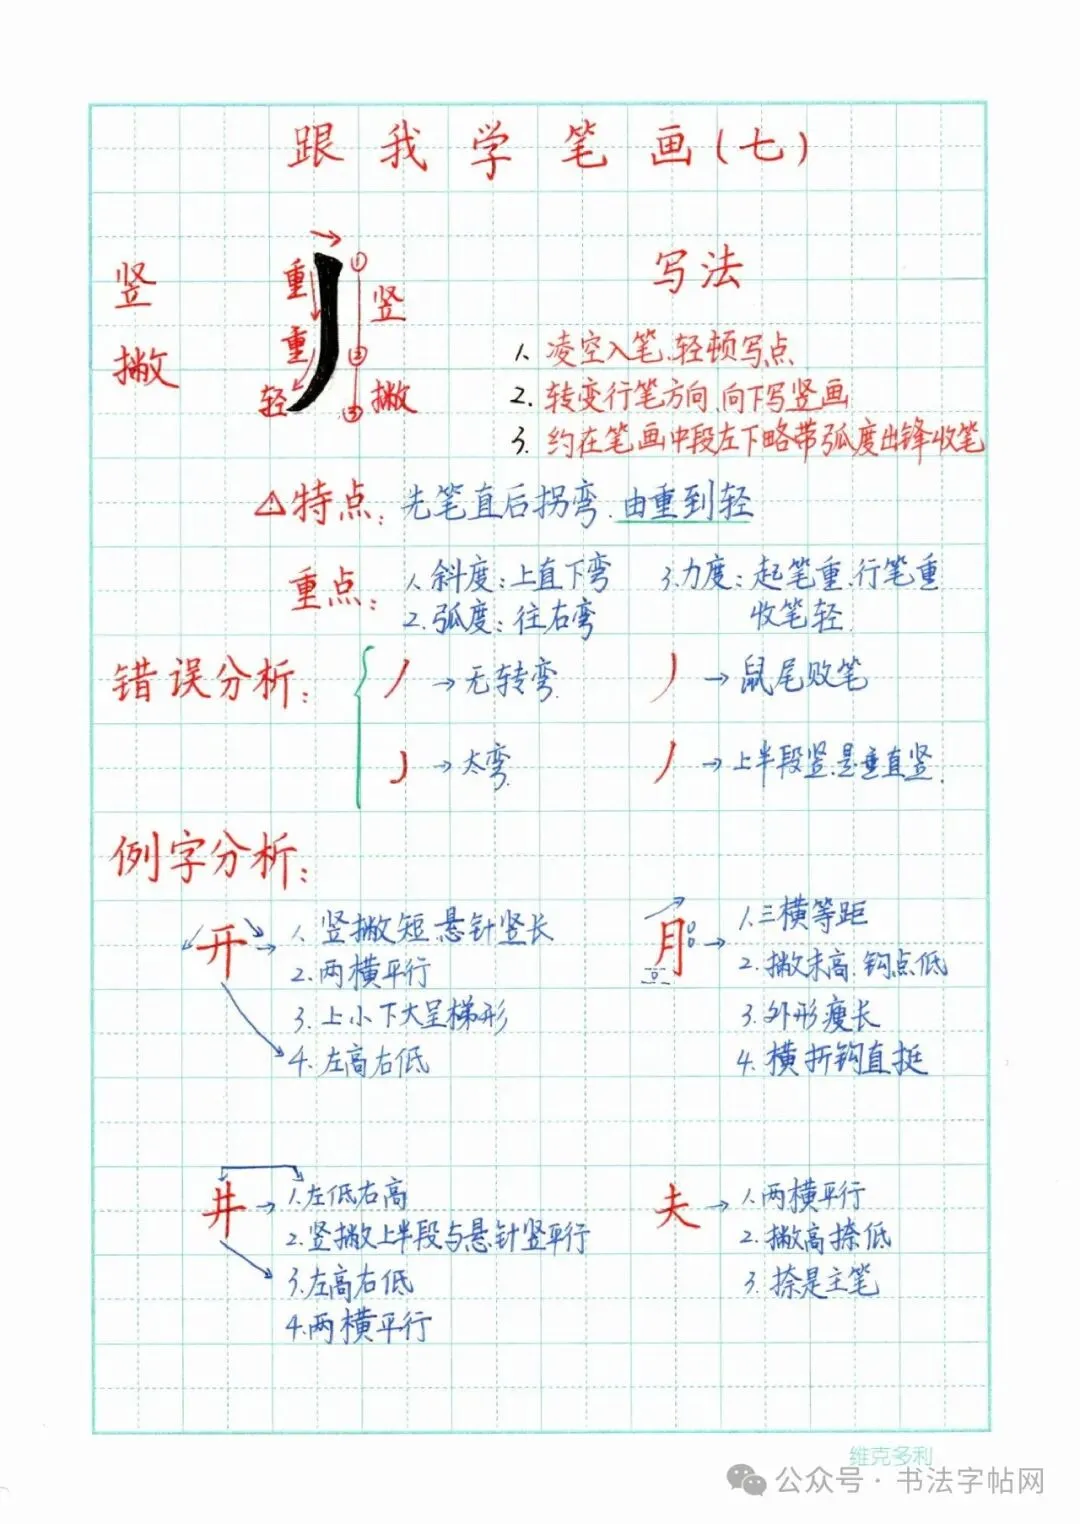 跟我学笔画(七)
竖撇
重
重
轻
①
②
③
竖
撇
写法
1. 凌空入笔.轻顿写点
2. 转变行笔方向.向下写竖画
3. 约在笔画中段左下略带弧度出锋收笔
⚠特点: 先笔直后拐弯.由重到轻
重点:
1. 斜度:上直下弯
2. 弧度:往右弯
3. 力度:起笔重.行笔重
收笔轻.
错误分析:
丿→无转弯.
丿→鼠尾败笔
丿→太弯.
丿→上半段竖.是垂直竖.
例字分析:
开
1. 竖撇短.悬针竖长
2. 两横平行
3. 上小下大呈梯形
4. 左高右低
月
1. 三横等距
2. 撇末高.钩点低
3. 外形瘦长
4. 横折钩直挺
井
1. 左低右高
2. 竖撇上半段与悬针竖平行
3. 左高右低
4. 两横平行
夫
1. 两横平行
2. 撇高捺低
3. 捺是主笔
维克多利
公众号·书法字帖网